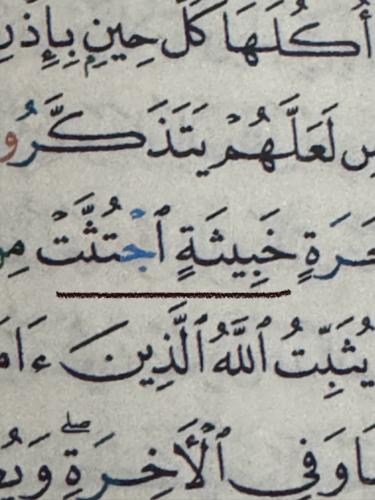 أُكُلَهَا كُلَّ حِينٍ بِإِذۡنِ
لَعَلَّهُمۡ يَتَذَكَّرُو
جَرَةٍ خَبِيثَةٍ ٱجۡتُثَّتۡ مِن
يُثَبِّتُ ٱللَّهُ ٱلَّذِينَ ءَامَ
وَفِي ٱلۡأٓخِرَةِۖ وَيُ